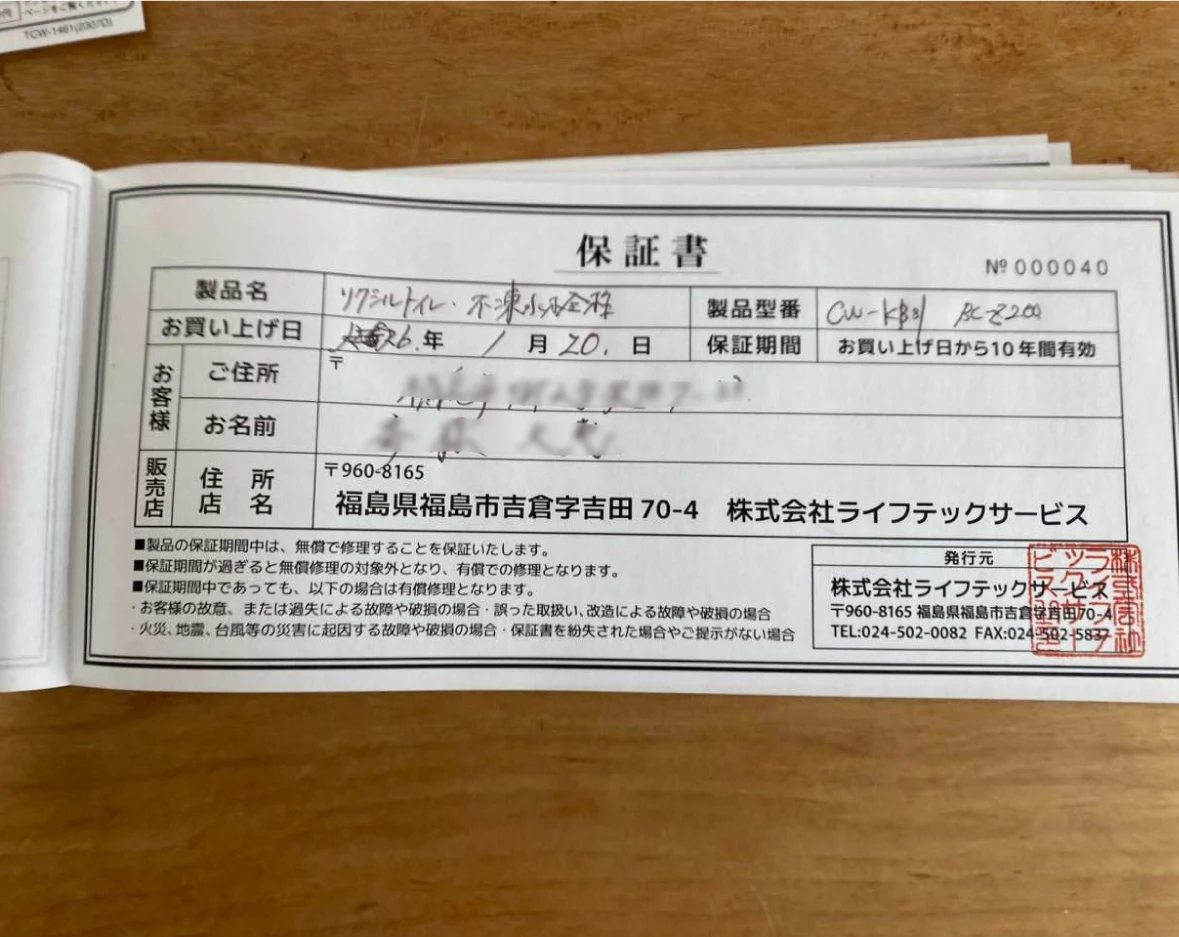 ページをご覧ください
TCW-1461(2307D)
保証書
№000040
製品名 リクシルトイレ・不凍水栓全種 製品型番 CW-KB81 BC-Z20Q
お買い上げ日 26.年 1月20.日 保証期間 お買い上げ日から10年間有効
お客様 ご住所 〒
お名前
販売店 住所 店名 〒960-8165
福島県福島市吉倉字吉田70-4 株式会社ライフテックサービス
■製品の保証期間中は、無償で修理することを保証いたします。
■保証期間が過ぎると無償修理の対象外となり、有償での修理となります。
■保証期間中であっても、以下の場合は有償修理となります。
・お客様の故意、または過失による故障や破損の場合・誤った取扱い、改造による故障や破損の場合
・火災、地震、台風等の災害に起因する故障や破損の場合・保証書を紛失された場合やご提示がない場合
発行元
株式会社ライフテックサービス
〒960-8165 福島県福島市吉倉字吉田70-4
TEL:024-502-0082 FAX:024-502-5837